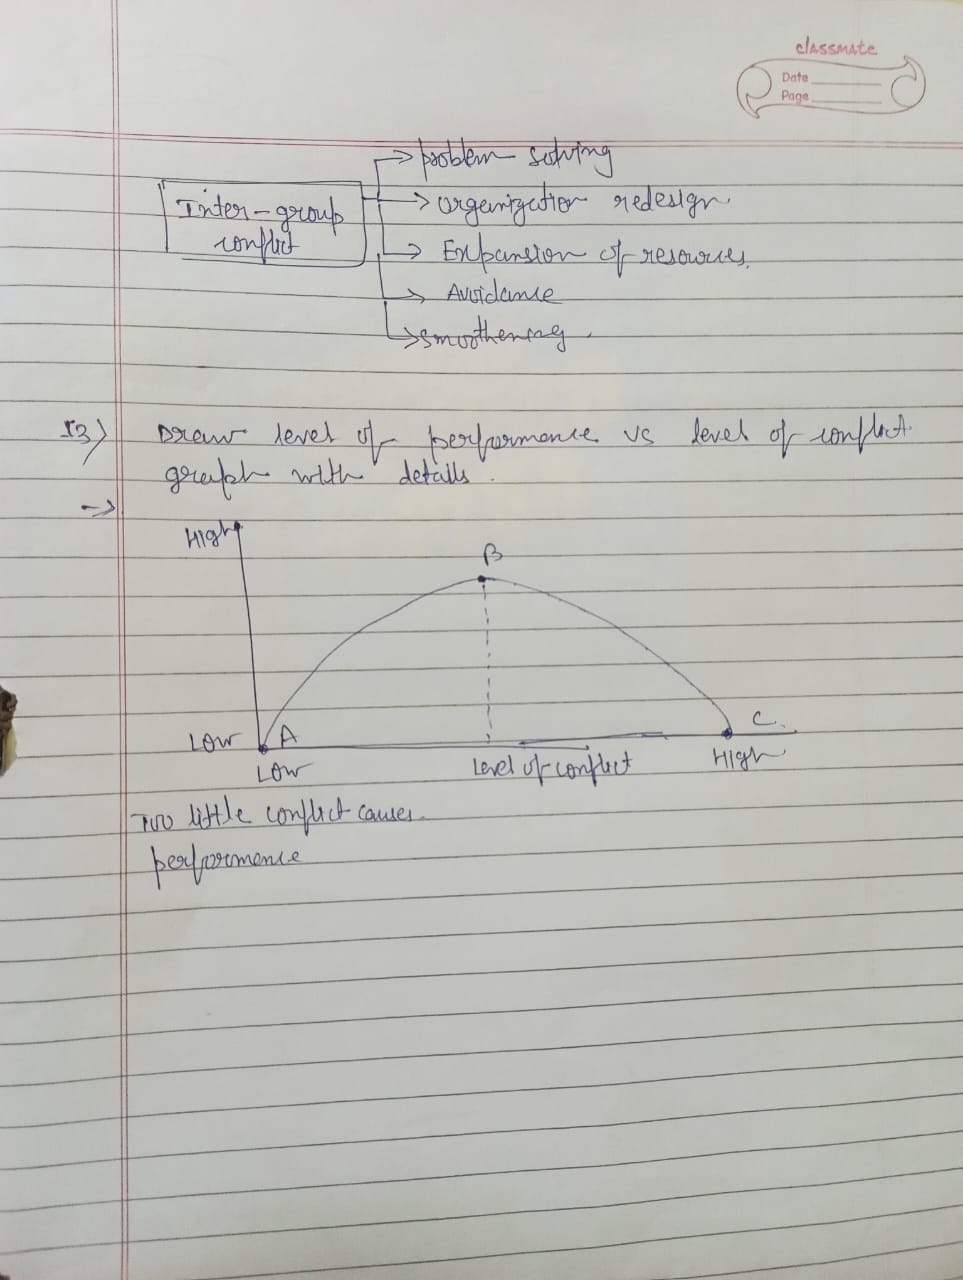 classmate
Date
Page
problem solving
Inter-group
conflict
organization redesign
Expansion of resources.
Avoidance
smoothening.
13) Draw level of performance vs level of conflict
graph with details.
High
B
Low
A
C.
Low
Level of conflict
High
Too little conflict causes.
performance